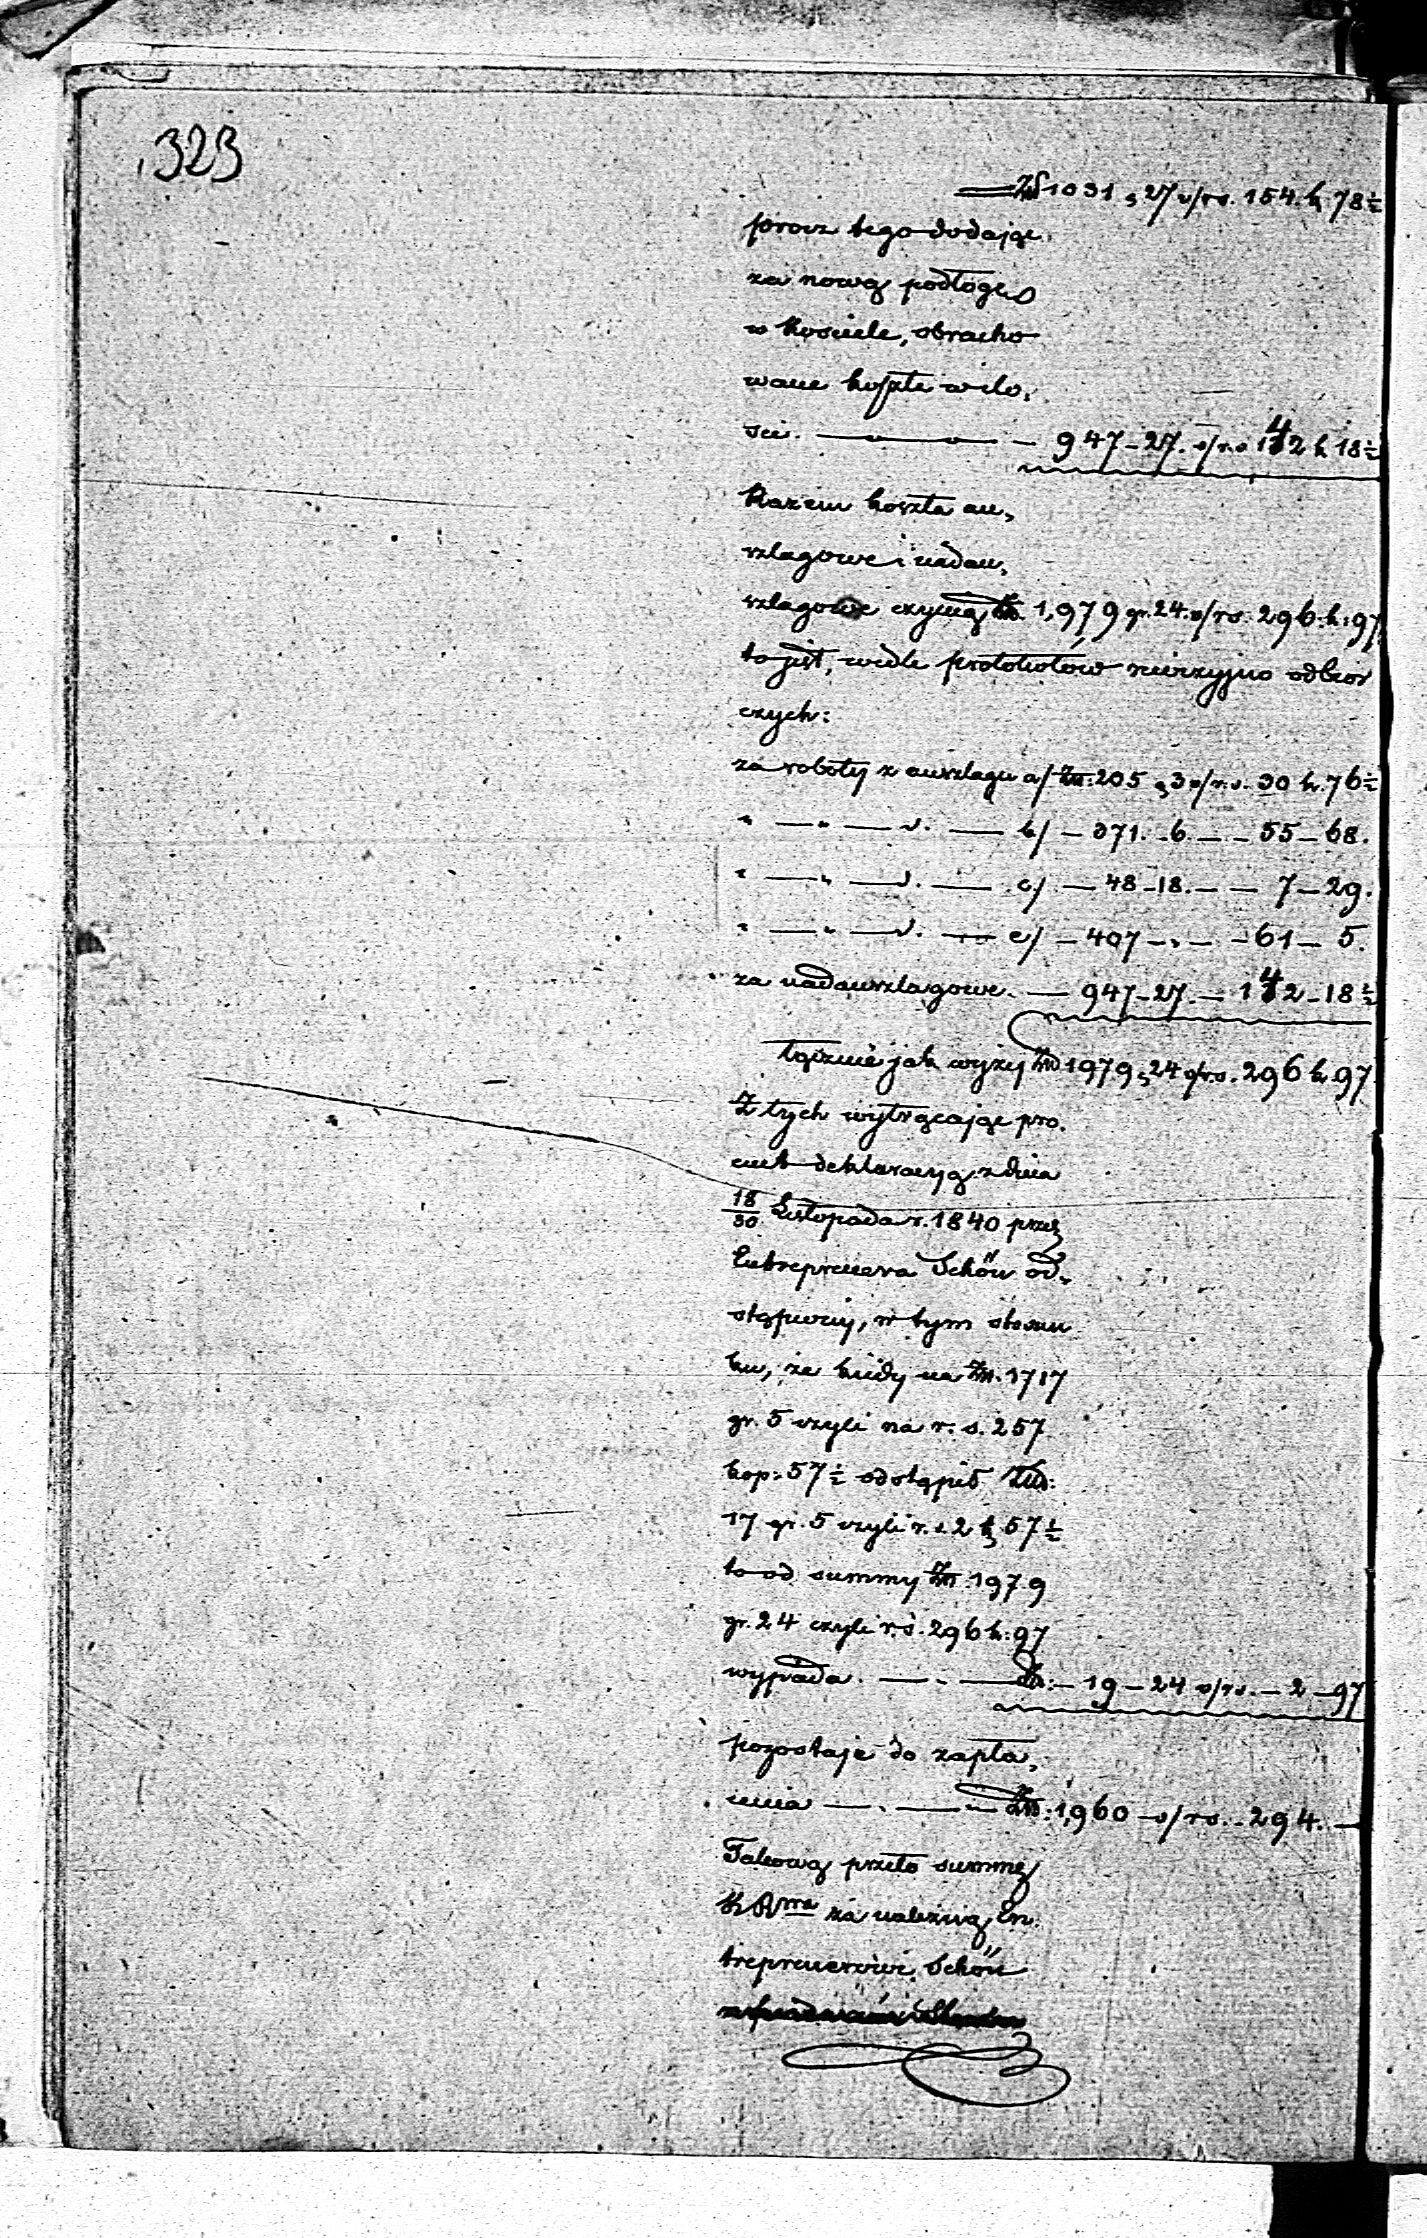 323
Złł 1031 g 27 v/rs. 154. k 78½
procz tego dodając
za nową podłogę
w Kościele, obracho
wane koszta w ilo,
ści. — 947-27. v/rs 142 k 18½
Razem koszta an,
szlagowe i nadan,
szlagowe czynią Złł. 1,979 gr. 24. v/rs. 296. k. 97
to jest, wedle protokołów rewizyjno odbior
czych:
za roboty z anszlagu a/ Złł. 205 g 3 v/r.s. 30 k. 76½
" — " — d. — b/ — 371. - 6. — - 55 — 68.
" — " — d. — c/ — 48 - 18. — — 7 — 29.
" — " — d. — e/ — 407 — " — - 61 — 5.
za nadanszlagowe. — 947-27. — 142 - 18½
łącznie jak wyżej Złł 1979 g 24 v/r.s. 296 k. 97
Z tych wytrącając pro.
cent deklaracyą z dnia
18/30 Listopada r. 1840 przez
Entreprenera Schön od,
stąpiony, w tym stosun
ku, że kiedy na Złł. 1717
gr. 5 czyli na r. s. 257
kop: 57½ odstąpił Złł:
17 gr. 5 czyli r. s. 2 k 57½
to od summy Złł. 1979
gr. 24 czyli r. s. 296 k: 97
wypada. — . — Złł: — 19 — 24 v/rs. — 2 — 97
pozostaje do zapła,
cenia — . — " — Złł: 1,960 v/rs. - 294. —
Takową przeto summę
K R za należną En
treprenerowi Schön